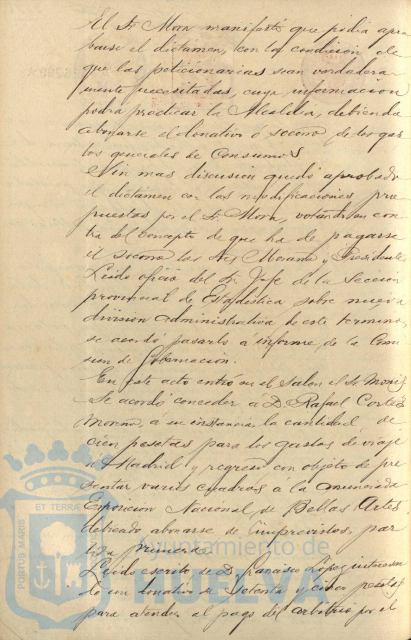 El Sr. Mora manifestó que podia apro
barse el dictamen, con la condicion de
que las peticionarias sean verdadera
mente necesitadas, cuya informacion
podra practicar la Alcaldia, debiendo
abonarse el donativo ó socorro, de los gas
tos generales de Consumos
Sin mas discusion quedó aprobado
el dictamen con las modificaciones pro
puestas por el Sr. Mora, votando en con
tra del concepto de que ha de pagarse
el socorro los Sres Morano y Presidente
Leido oficio del Sr. Jefe de la Seccion
provincial de Estadistica sobre nueva
division administrativa de este termino,
se acordó pasarlo á informe de la Comi
sion de Gobernacion.
En este acto entró en el salon el Sr.
Se acordó conceder á D. Rafael Cortés
Moreno, a su instancia la cantidad de
cien pesetas para los gastos de viaje
a Madrid y regreso con objeto de pre
sentar varios cuadros á la anunciada
Exposicion Nacional de Bellas Artes,
debiendo abonarse de imprevistos, par
tida primera
Leido escrito de D. Francisco Lopez interesan
do un donativo de setenta y cinco pesetas
para atender al pago del arbitrio por el
PORTUS MARIS
ET TERRAE
Ayuntamiento de
HUELVA